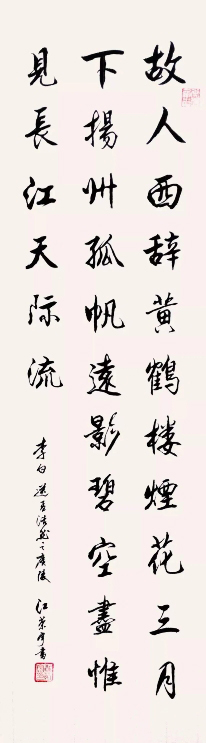 故人西辞黄鹤楼煙花三月
下揚州孤帆遠影碧空盡惟
見長江天际流
李白送孟浩然之廣陵 江